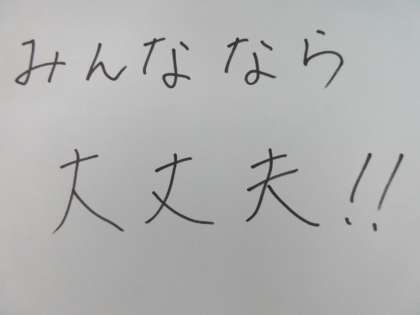 みんななら
大丈夫!!